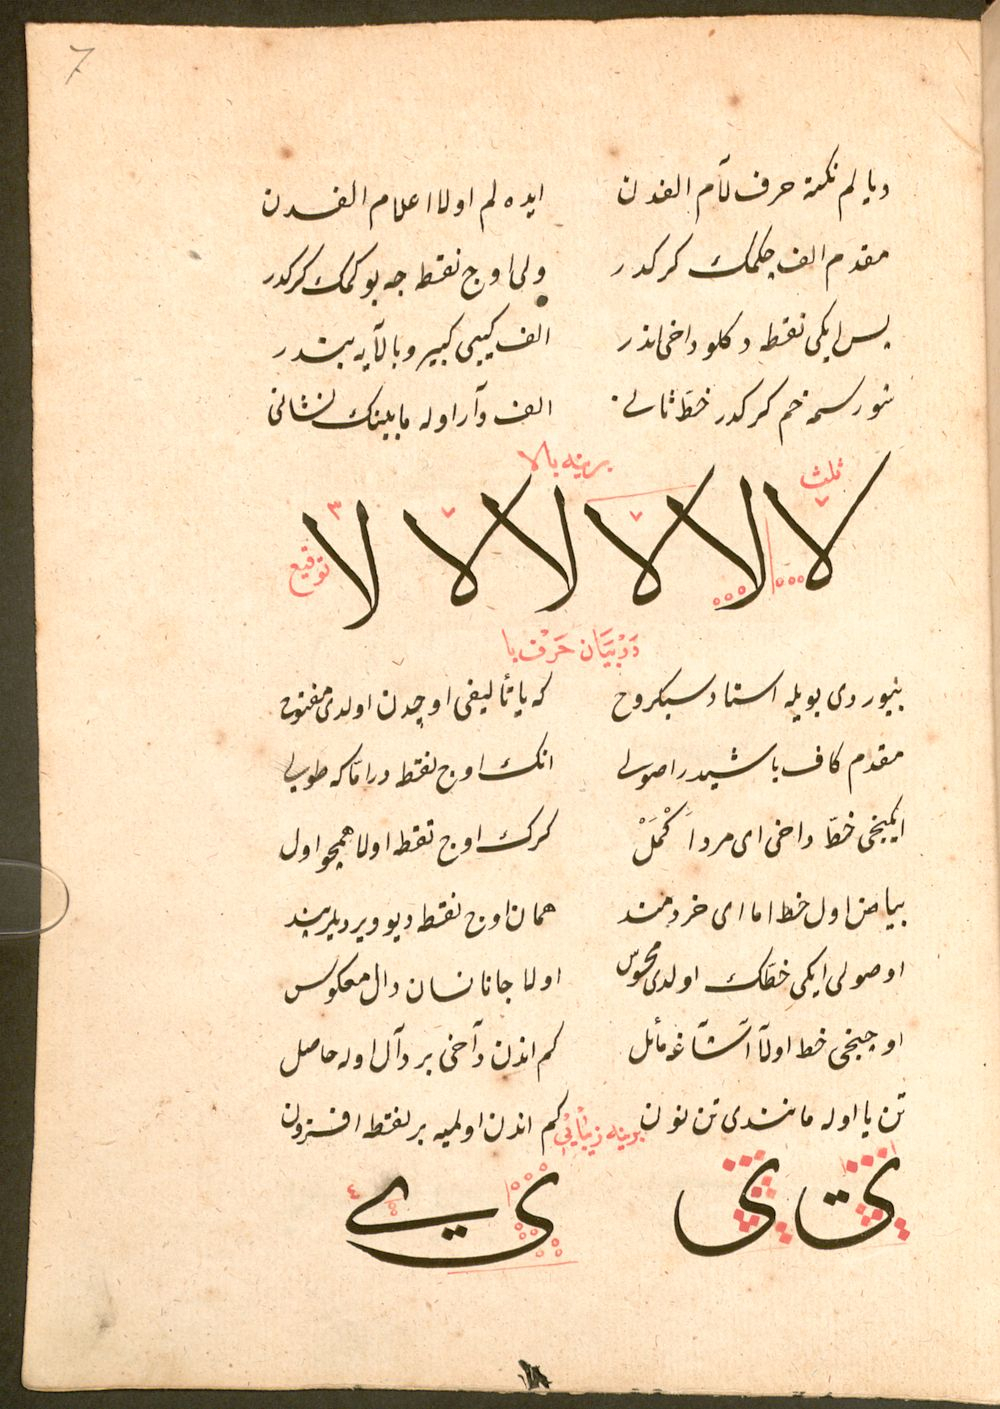 7
دیالم نکته حرف لآم الفدن ایده لم اولا اعلام الفدن
مقدم الف چکمک کرکدر ولی اوج نقطه جه بوکمک کرکدر
پس ایکی نقطه دکلو داخی اندر الف کیبی کبیر و بالایه بندر
شو رسمه خم کرکدر خط ثانی الف وآر اوله مابینک نشانی
ثلث
برینه بالا
لا لا لا لا لا لا
٣
توقیع
دَرْبَیَان حَرْف یا
بیوردی بویله استاد سبکروح که یا تألیفی اوچدن اولدی مفتوح
مقدم کاف باشیدر اصولی انک اوج نقطه در اما که طولی
ایکنجی خط داخی ای مرد اَکْمَلْ کرک اوج نقطه اولا همچو اول
بیاض اول خط اما ای خردمند همان اوج نقطه دیو ویردیلر پند
اوصولی ایکی خطک اولدی محسوس اولا جانا نسان دال معکوس
اوچنجی خط اولآ آشآغه مائل کم اندن دآخی بر دآل اوله حاصل
تن یا اوله مانندی تن نون کم اندن اولمیه بر نقطه افزون
برینه زیبایی
ی ی ی ے
٤